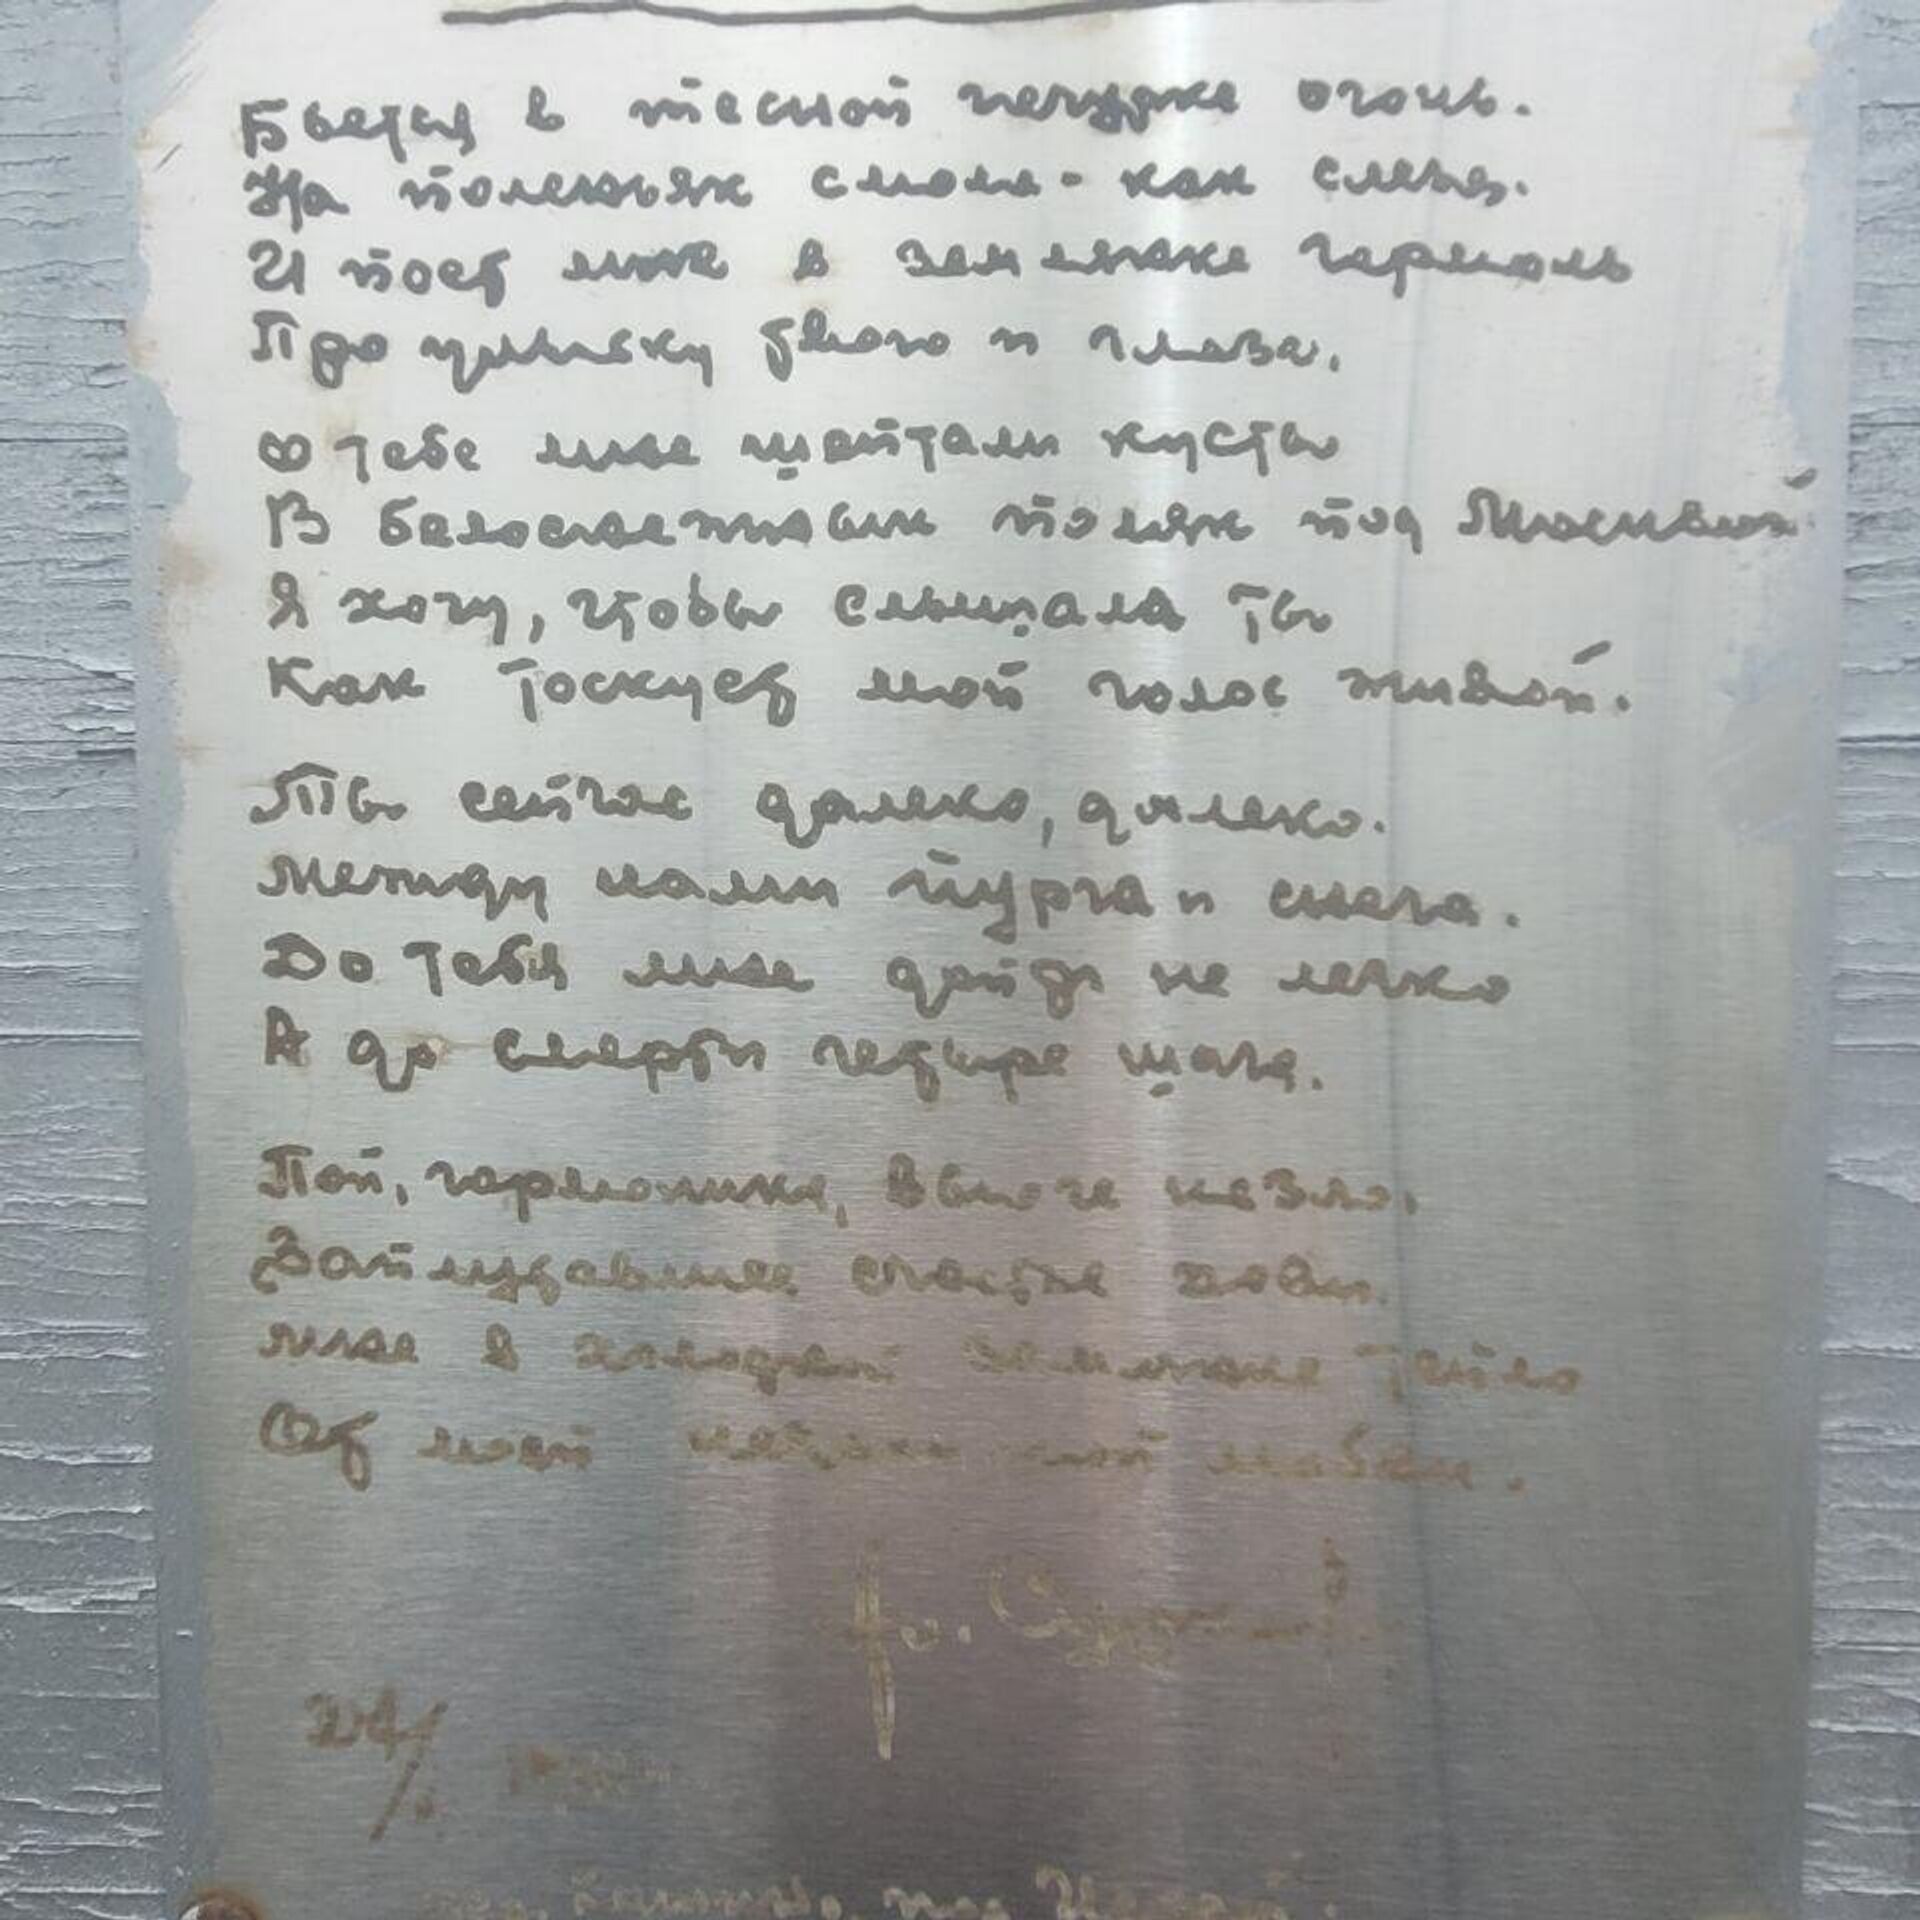 Бьется в тесной печурке огонь.
На поленьях смола - как слеза.
И поет мне в землянке гармонь
Про улыбку твою и глаза.
О тебе мне шептали кусты
В белоснежных полях под Москвой.
Я хочу, чтобы слышала ты
Как тоскует мой голос живой.
Ты сейчас далеко, далеко.
Между нами пурга и снега.
До тебя мне дойти не легко
А до смерти четыре шага.
Пой, гармоника, вьюге назло,
Заплутавшее счастье зови.
Мне в холодной землянке тепло
От моей негасимой любви.
24/